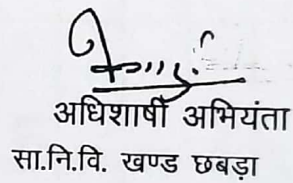 अधिशाषी अभियंता
सा.नि.वि. खण्ड छबड़ा